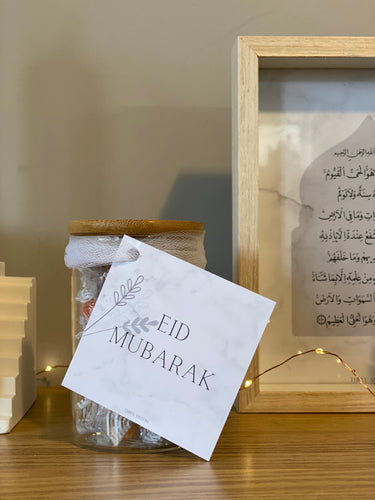 EID
MUBARAK
الله الرحمن الرحيم
هو الحي القيوم
سنة ولا نوم
وما في الأرض
يشفع عنده إلا بإذنه
وما خلفهم
من علمه إلا بما شاء
السموات والأرض
وهو العلي العظيم